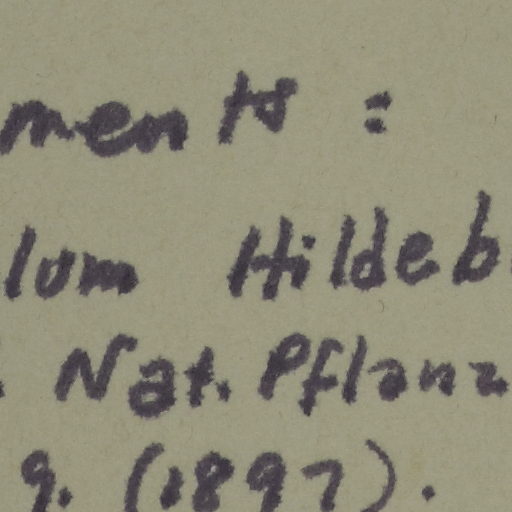 ments :
lum Hildeb
. Nat. Pflanz
9. (1897).